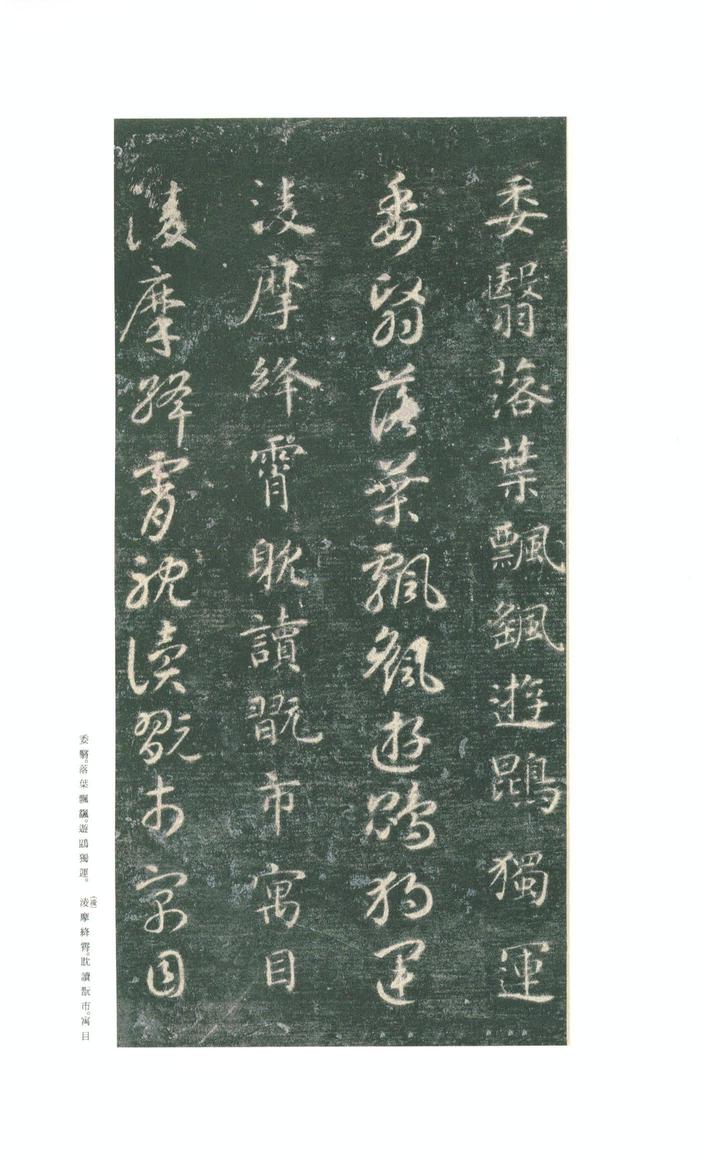 委翳落葉飄颻遊鵾獨運
委翳落葉飄颻遊鵾獨運
淩摩絳霄躭讀翫市寓目
淩摩絳霄躭讀翫市寓目
委翳。落葉飄颻。遊鵾獨運。淩(凌)摩絳霄。耽讀翫市。寓目